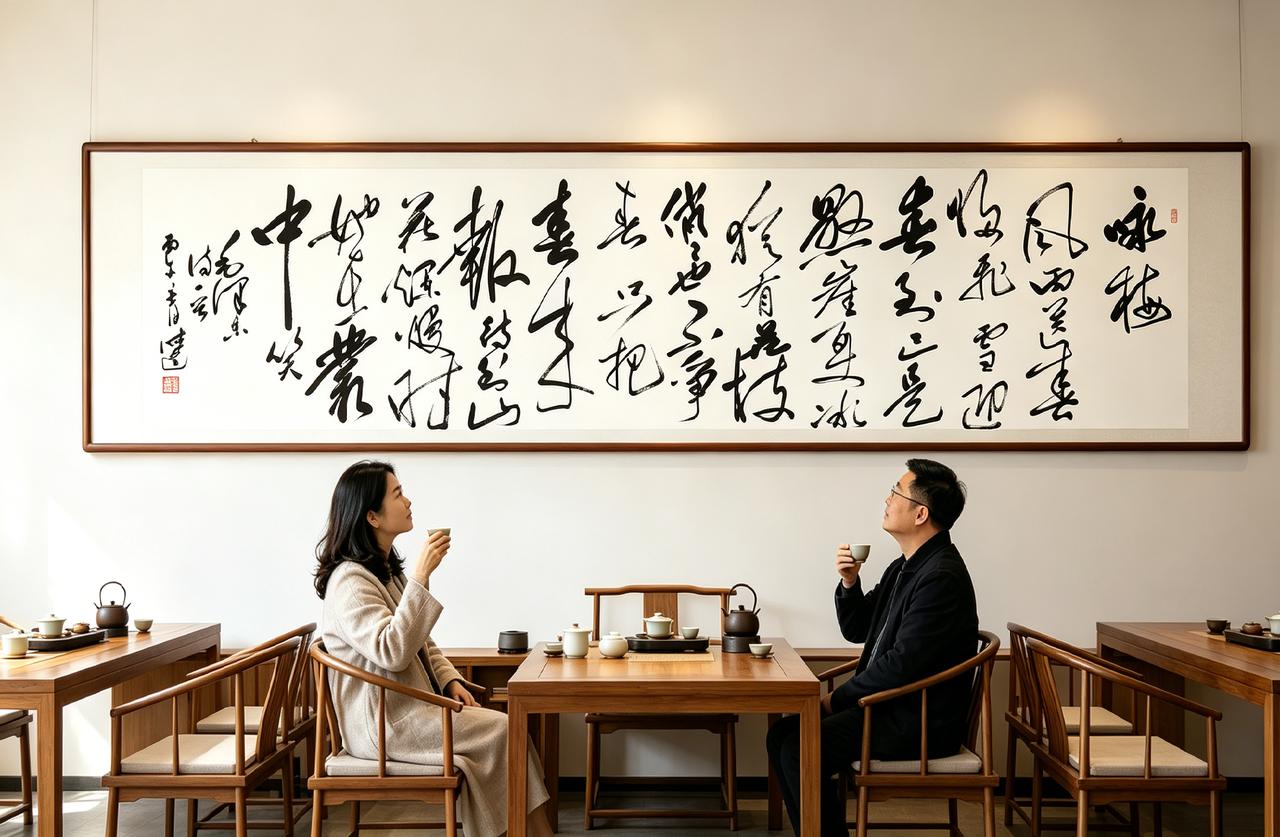 咏梅
风雨送春
归飞雪迎
春到已是
懸崖百丈冰
犹有花枝
俏也不争
春只把
春来
報待到山
花烂漫时
她在叢
中笑
毛泽东